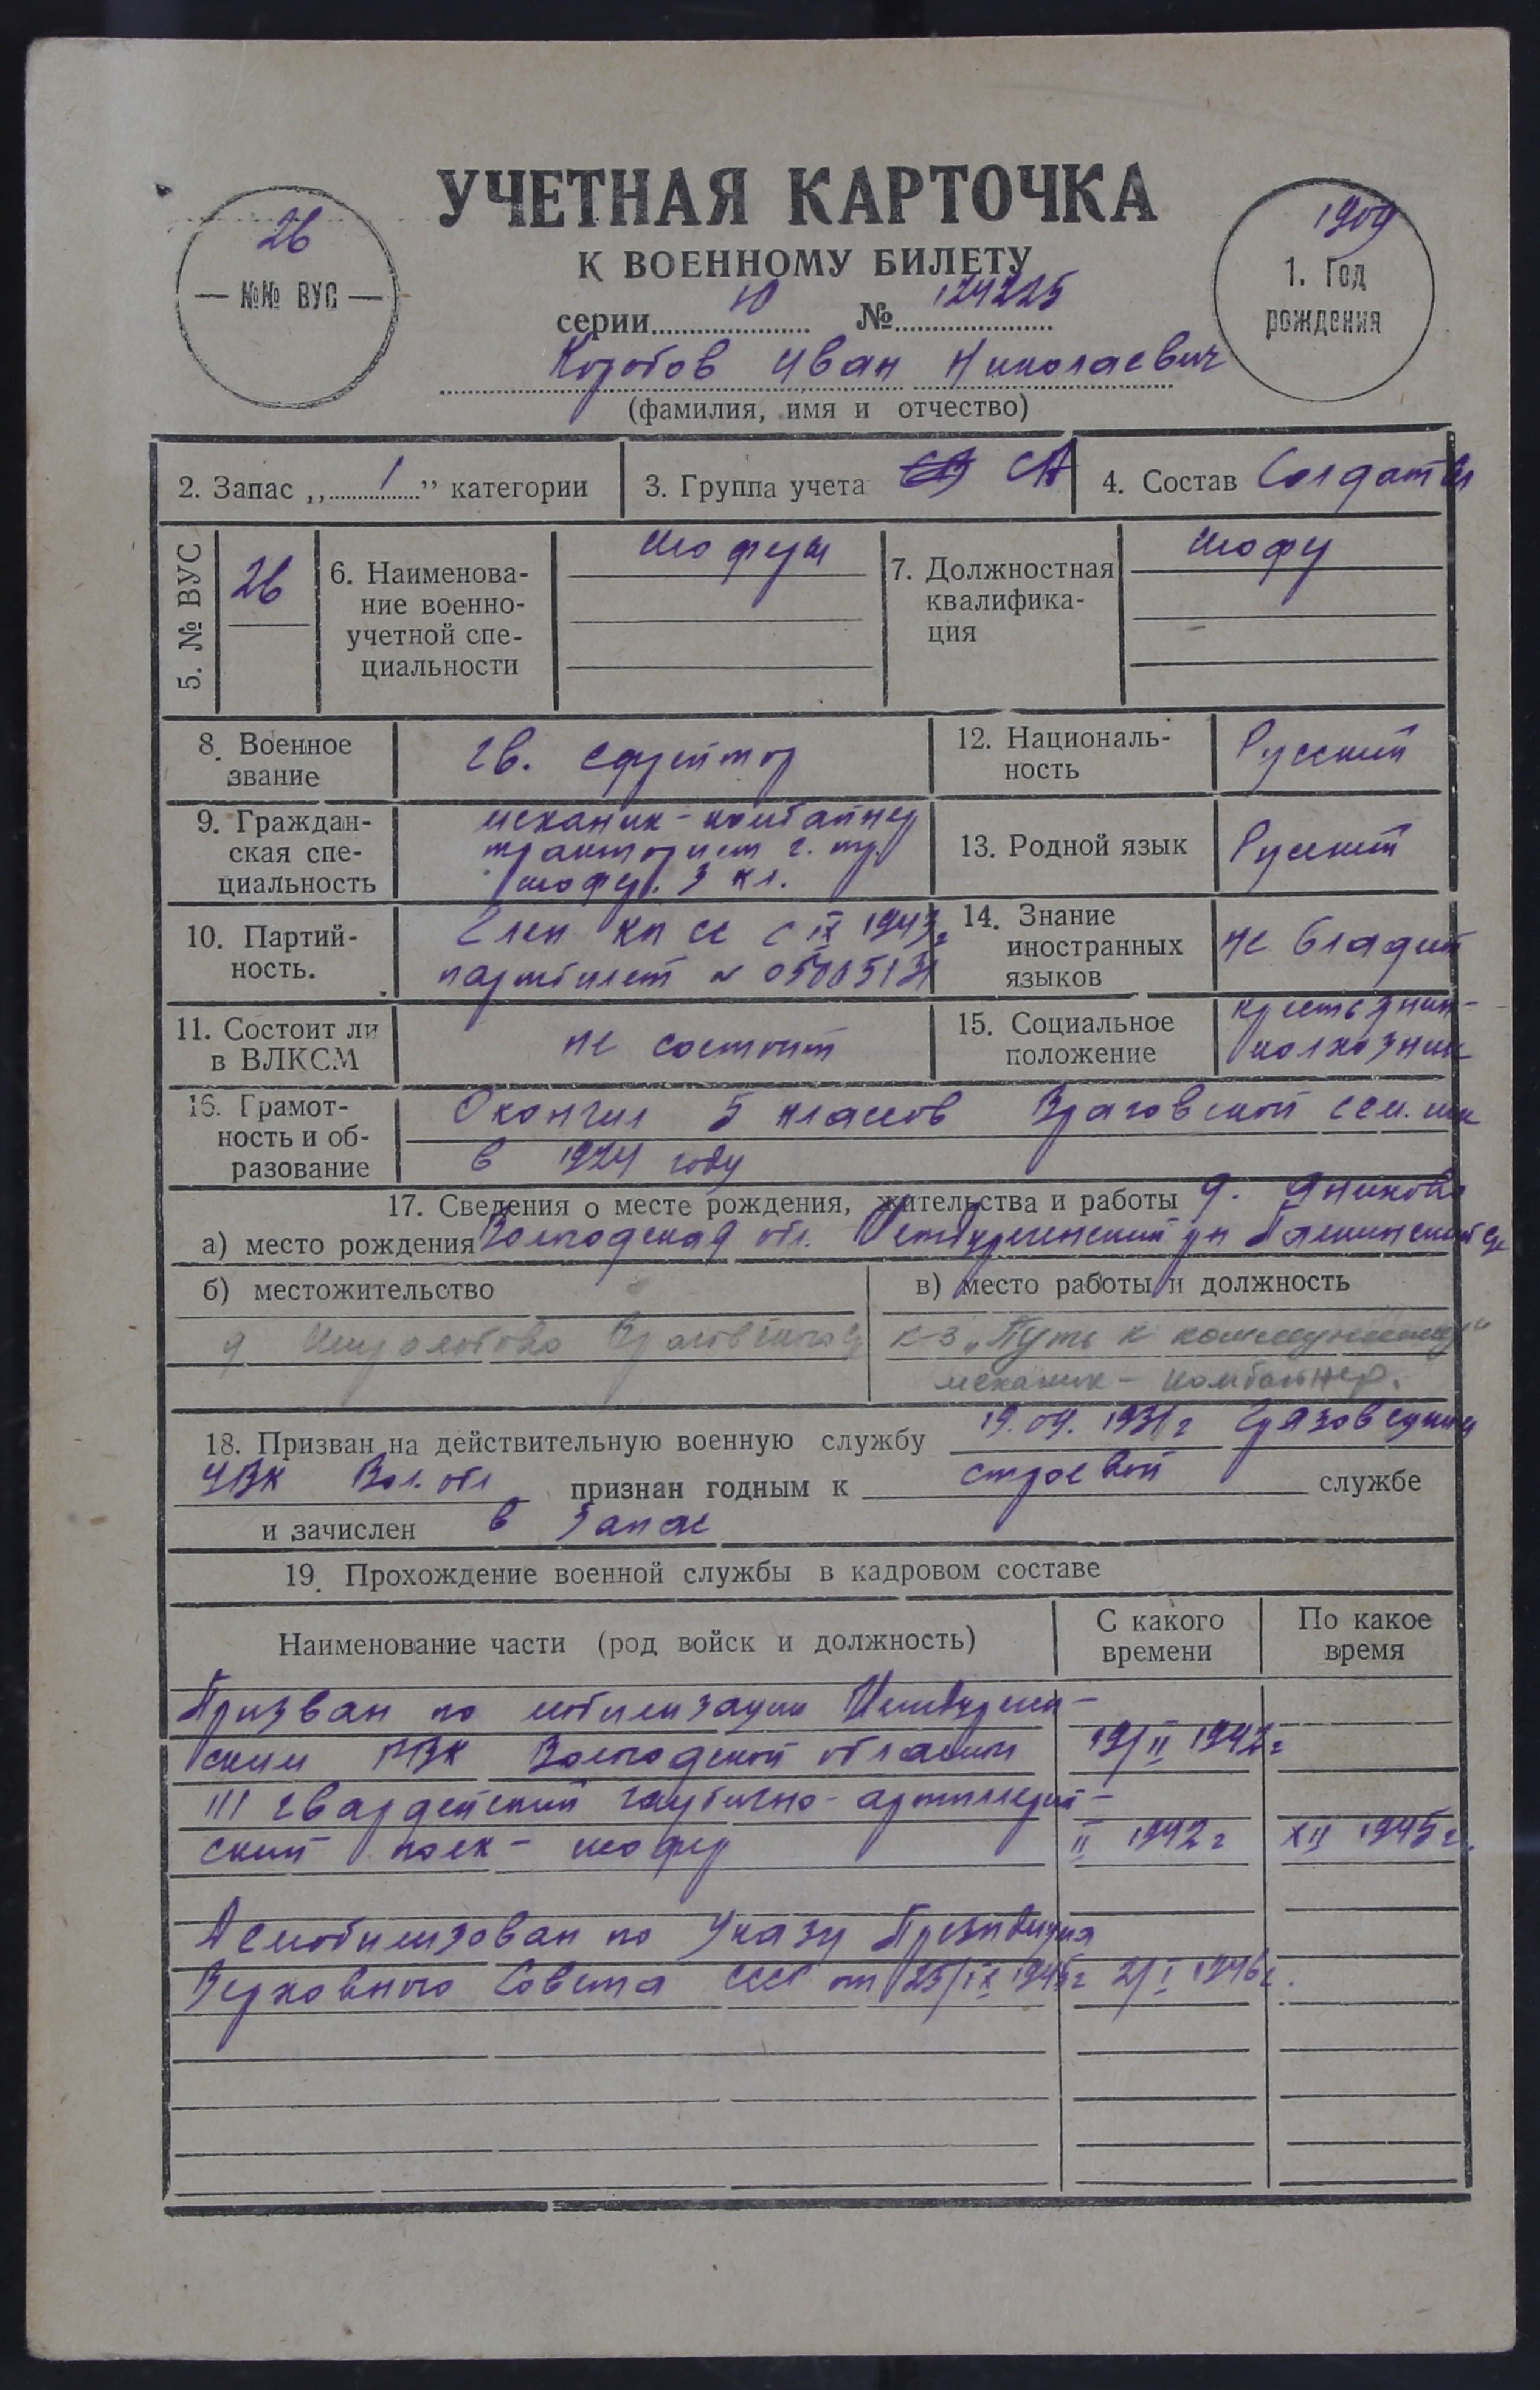 УЧЕТНАЯ КАРТОЧКА
К ВОЕННОМУ БИЛЕТУ
26
— №№ ВУС —
1909
1. Год
рождения
серии Ю № 124225
Коробов Иван Николаевич
(фамилия, имя и отчество)
2. Запас „1” категории
3. Группа учета СА
4. Состав Солдаты
5. № ВУС
26
6. Наименова-
ние военно-
учетной спе-
циальности
шоферы
7. Должностная
квалифика-
ция
шофер
8. Военное
звание
гв. ефрейтор
12. Националь-
ность
Русский
9. Граждан-
ская спе-
циальность
механик-комбайнер
тракторист
шофер. 3 кл.
13. Родной язык
Русский
10. Партий-
ность.
Член КПСС с IX 1943 г
партбилет №
14. Знание
иностранных
языков
не владеет
11. Состоит ли
в ВЛКСМ
не состоит
15. Социальное
положение
крестьянин-
колхозник
16. Грамот-
ность и об-
разование
Окончил 5 классов Враговской сем. шк
в 1924 году
17. Сведения о месте рождения, жительства и работы д. Аниково
а) место рождения Вологодская обл. Междуреченский рн
б) местожительство
д
в) место работы и должность
к-з „Путь к коммунизму“
механик - комбайнер.
18. Призван на действительную военную службу 19.09.1931 г Грязовецким
УВК Вол. обл признан годным к строевой службе
и зачислен в запас
19. Прохождение военной службы в кадровом составе
Наименование части (род войск и должность)
С какого
времени
По какое
время
Призван по мобилизации Междуречен-
ским РВК Вологодской области 19/II 1942 г
III гвардейский гаубично-артиллерий-
ский полк - шофер II 1942 г XII 1945 г.
Демобилизован по Указу Президиума
Верховного Совета СССР от 25/IX 1945 г 2/I 1946 г.